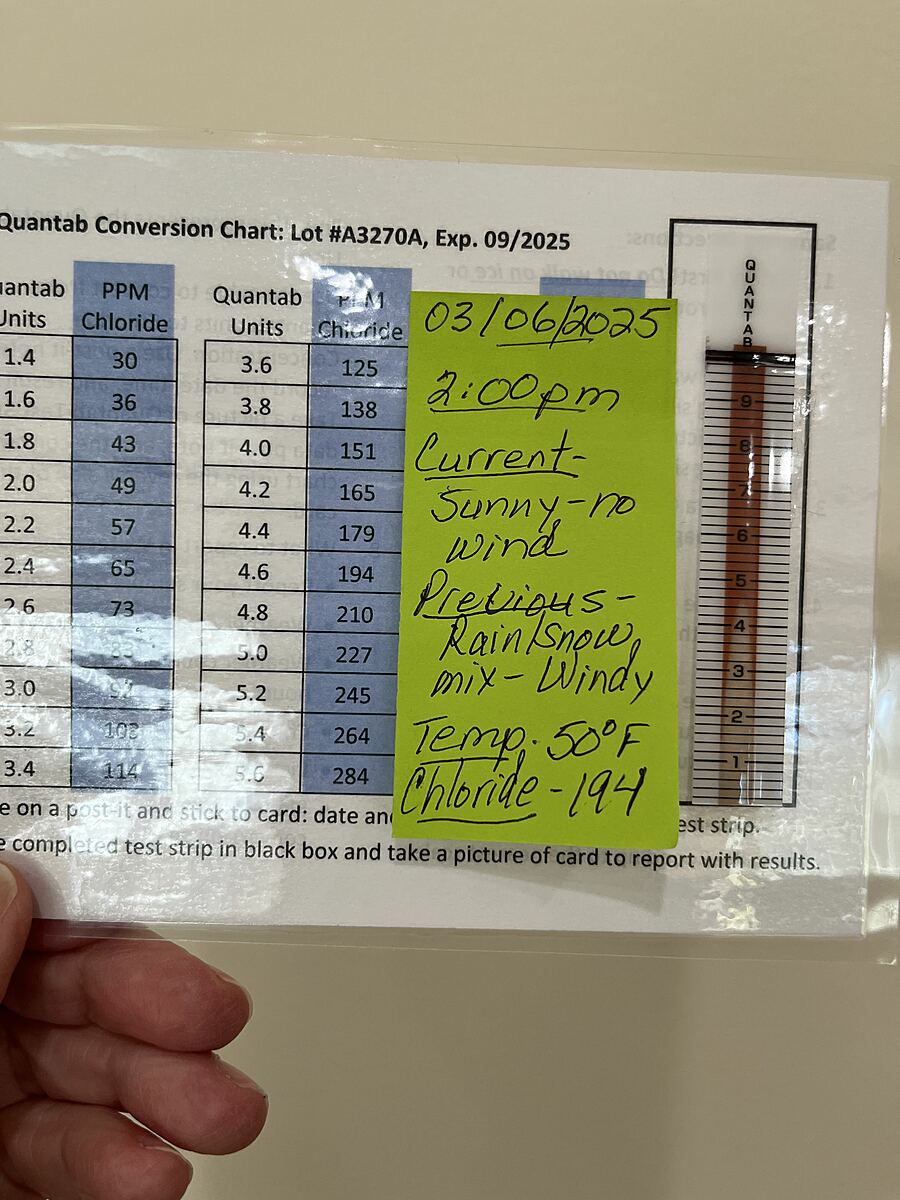 Quantab Conversion Chart: Lot #A3270A, Exp. 09/2025
uantab Units PPM Chloride Quantab Units Chloride
1.4 30 3.6 125
1.6 36 3.8 138
1.8 43 4.0 151
2.0 49 4.2 165
2.2 57 4.4 179
2.4 65 4.6 194
2.6 73 4.8 210
2.8 5.0 227
3.0 92 5.2 245
3.2 103 5.4 264
3.4 114 5.6 284
03/06/2025
2:00pm
Current-
Sunny-no
wind
Previous-
Rain/Snow
mix-Windy
Temp. 50°F
Chloride-194
QUANTAB
9
8
7
6
5
4
3
2
1
e on a post-it and stick to card: date an est strip.
e completed test strip in black box and take a picture of card to report with results.